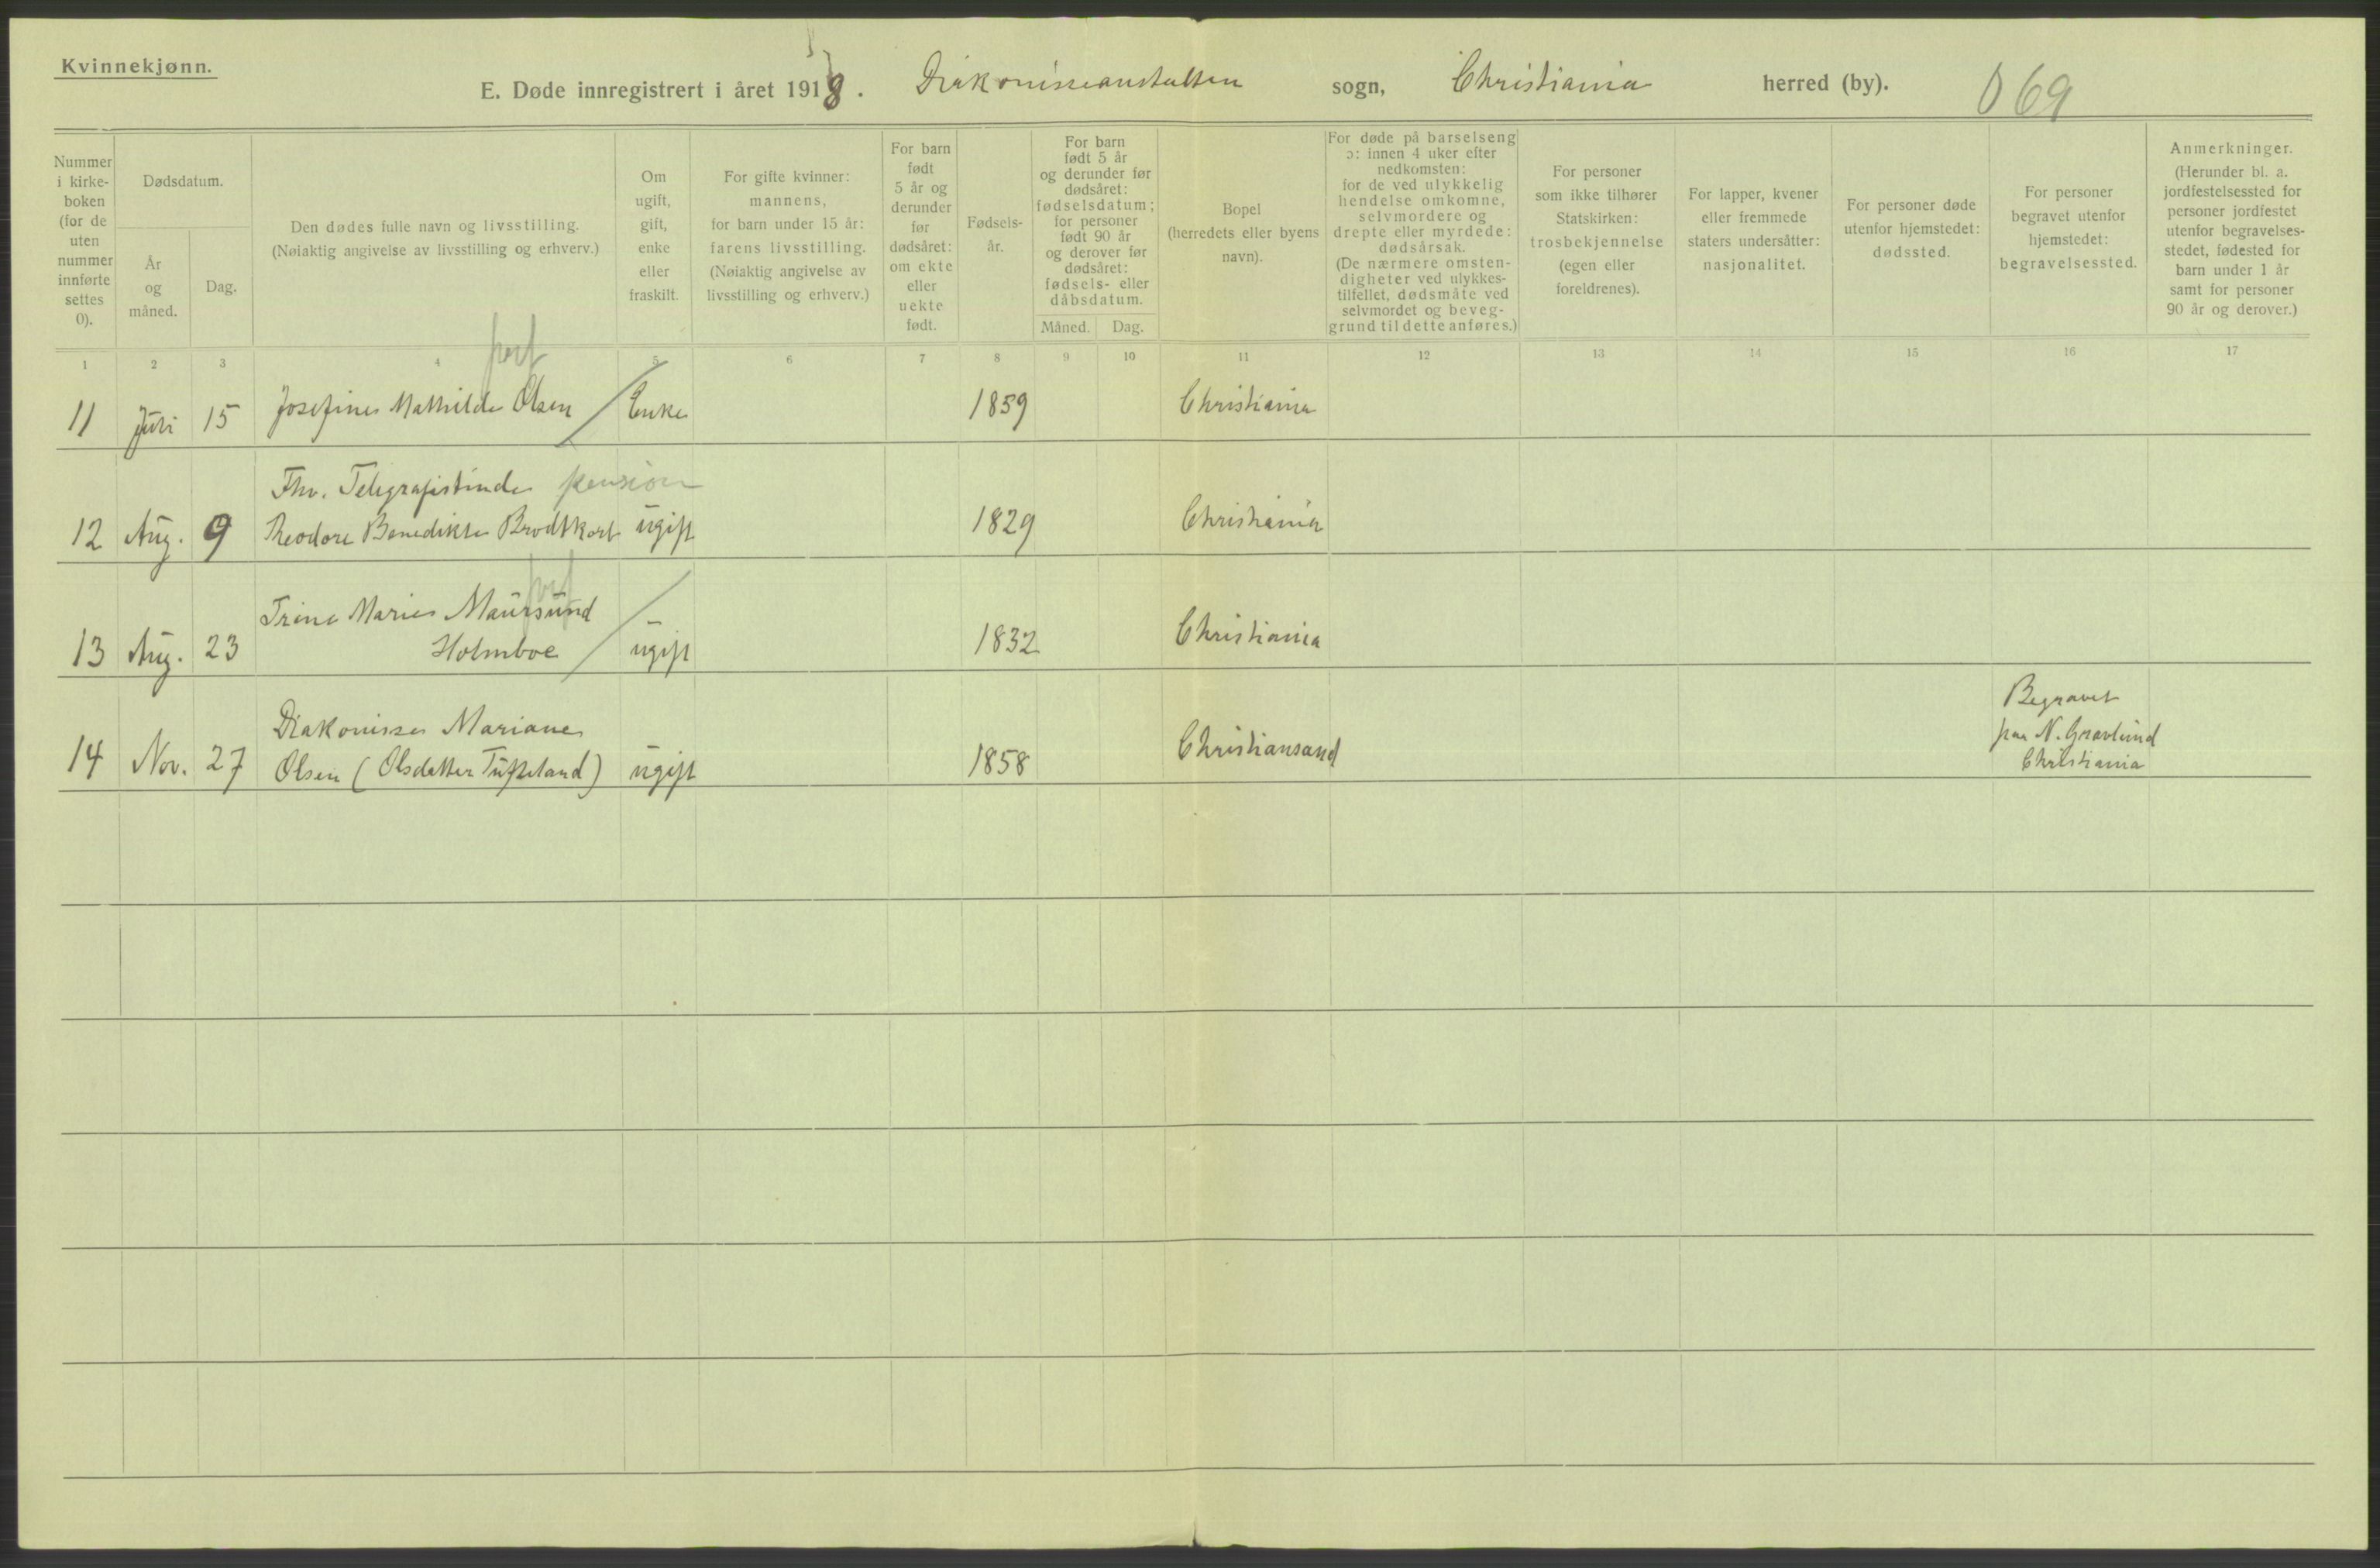 Kvinnekjønn.
E. Døde innregistrert i året 1918. Diakonisseanstalten sogn, Christiania herred (by). 069
Nummer i kirke-boken (for de uten nummer innførte settes 0).
Dødsdatum.
År og måned.
Dag.
Den dødes fulle navn og livsstilling.
(Nøiaktig angivelse av livsstilling og erhverv.)
Om ugift, gift, enke eller fraskilt.
For gifte kvinner: mannens, for barn under 15 år: farens livsstilling.
(Nøiaktig angivelse av livsstilling og erhverv.)
For barn født 5 år og derunder før dødsåret: om ekte eller uekte født.
Fødsels-år.
For barn født 5 år og derunder før dødsåret: fødselsdatum; for personer født 90 år og derover før dødsåret: fødsels- eller dåbsdatum.
Måned. Dag.
Bopel (herredets eller byens navn).
For døde på barselseng ɔ: innen 4 uker efter nedkomsten: for de ved ulykkelig hendelse omkomne, selvmordere og drepte eller myrdede: dødsårsak.
(De nærmere omsten-digheter ved ulykkes-tilfellet, dødsmåte ved selvmordet og beveg-grund til dette anføres.)
For personer som ikke tilhører Statskirken: trosbekjennelse (egen eller foreldrenes).
For lapper, kvener eller fremmede staters undersåtter: nasjonalitet.
For personer døde utenfor hjemstedet: dødssted.
For personer begravet utenfor hjemstedet: begravelsessted.
Anmerkninger.
(Herunder bl. a. jordfestelsessted for personer jordfestet utenfor begravelses-stedet, fødested for barn under 1 år samt for personer 90 år og derover.)
1 2 3 4 5 6 7 8 9 10 11 12 13 14 15 16 17
11 Juli 15 Josefine Mathilde Olsen Enke 1859 Christiania
Fhv. Telegrafistinde pension
12 Aug. 9 Theodore Benedikte Brodtkorb ugift 1829 Christiania
Trine Marie Maursund
13 Aug. 23 Holmboe ugift 1832 Christiania
Diakonisse Mariane
14 Nov. 27 Olsen (Olsdatter Tufteland) ugift 1858 Christiansand
Begravet
paa N. Gravlund
Christiania